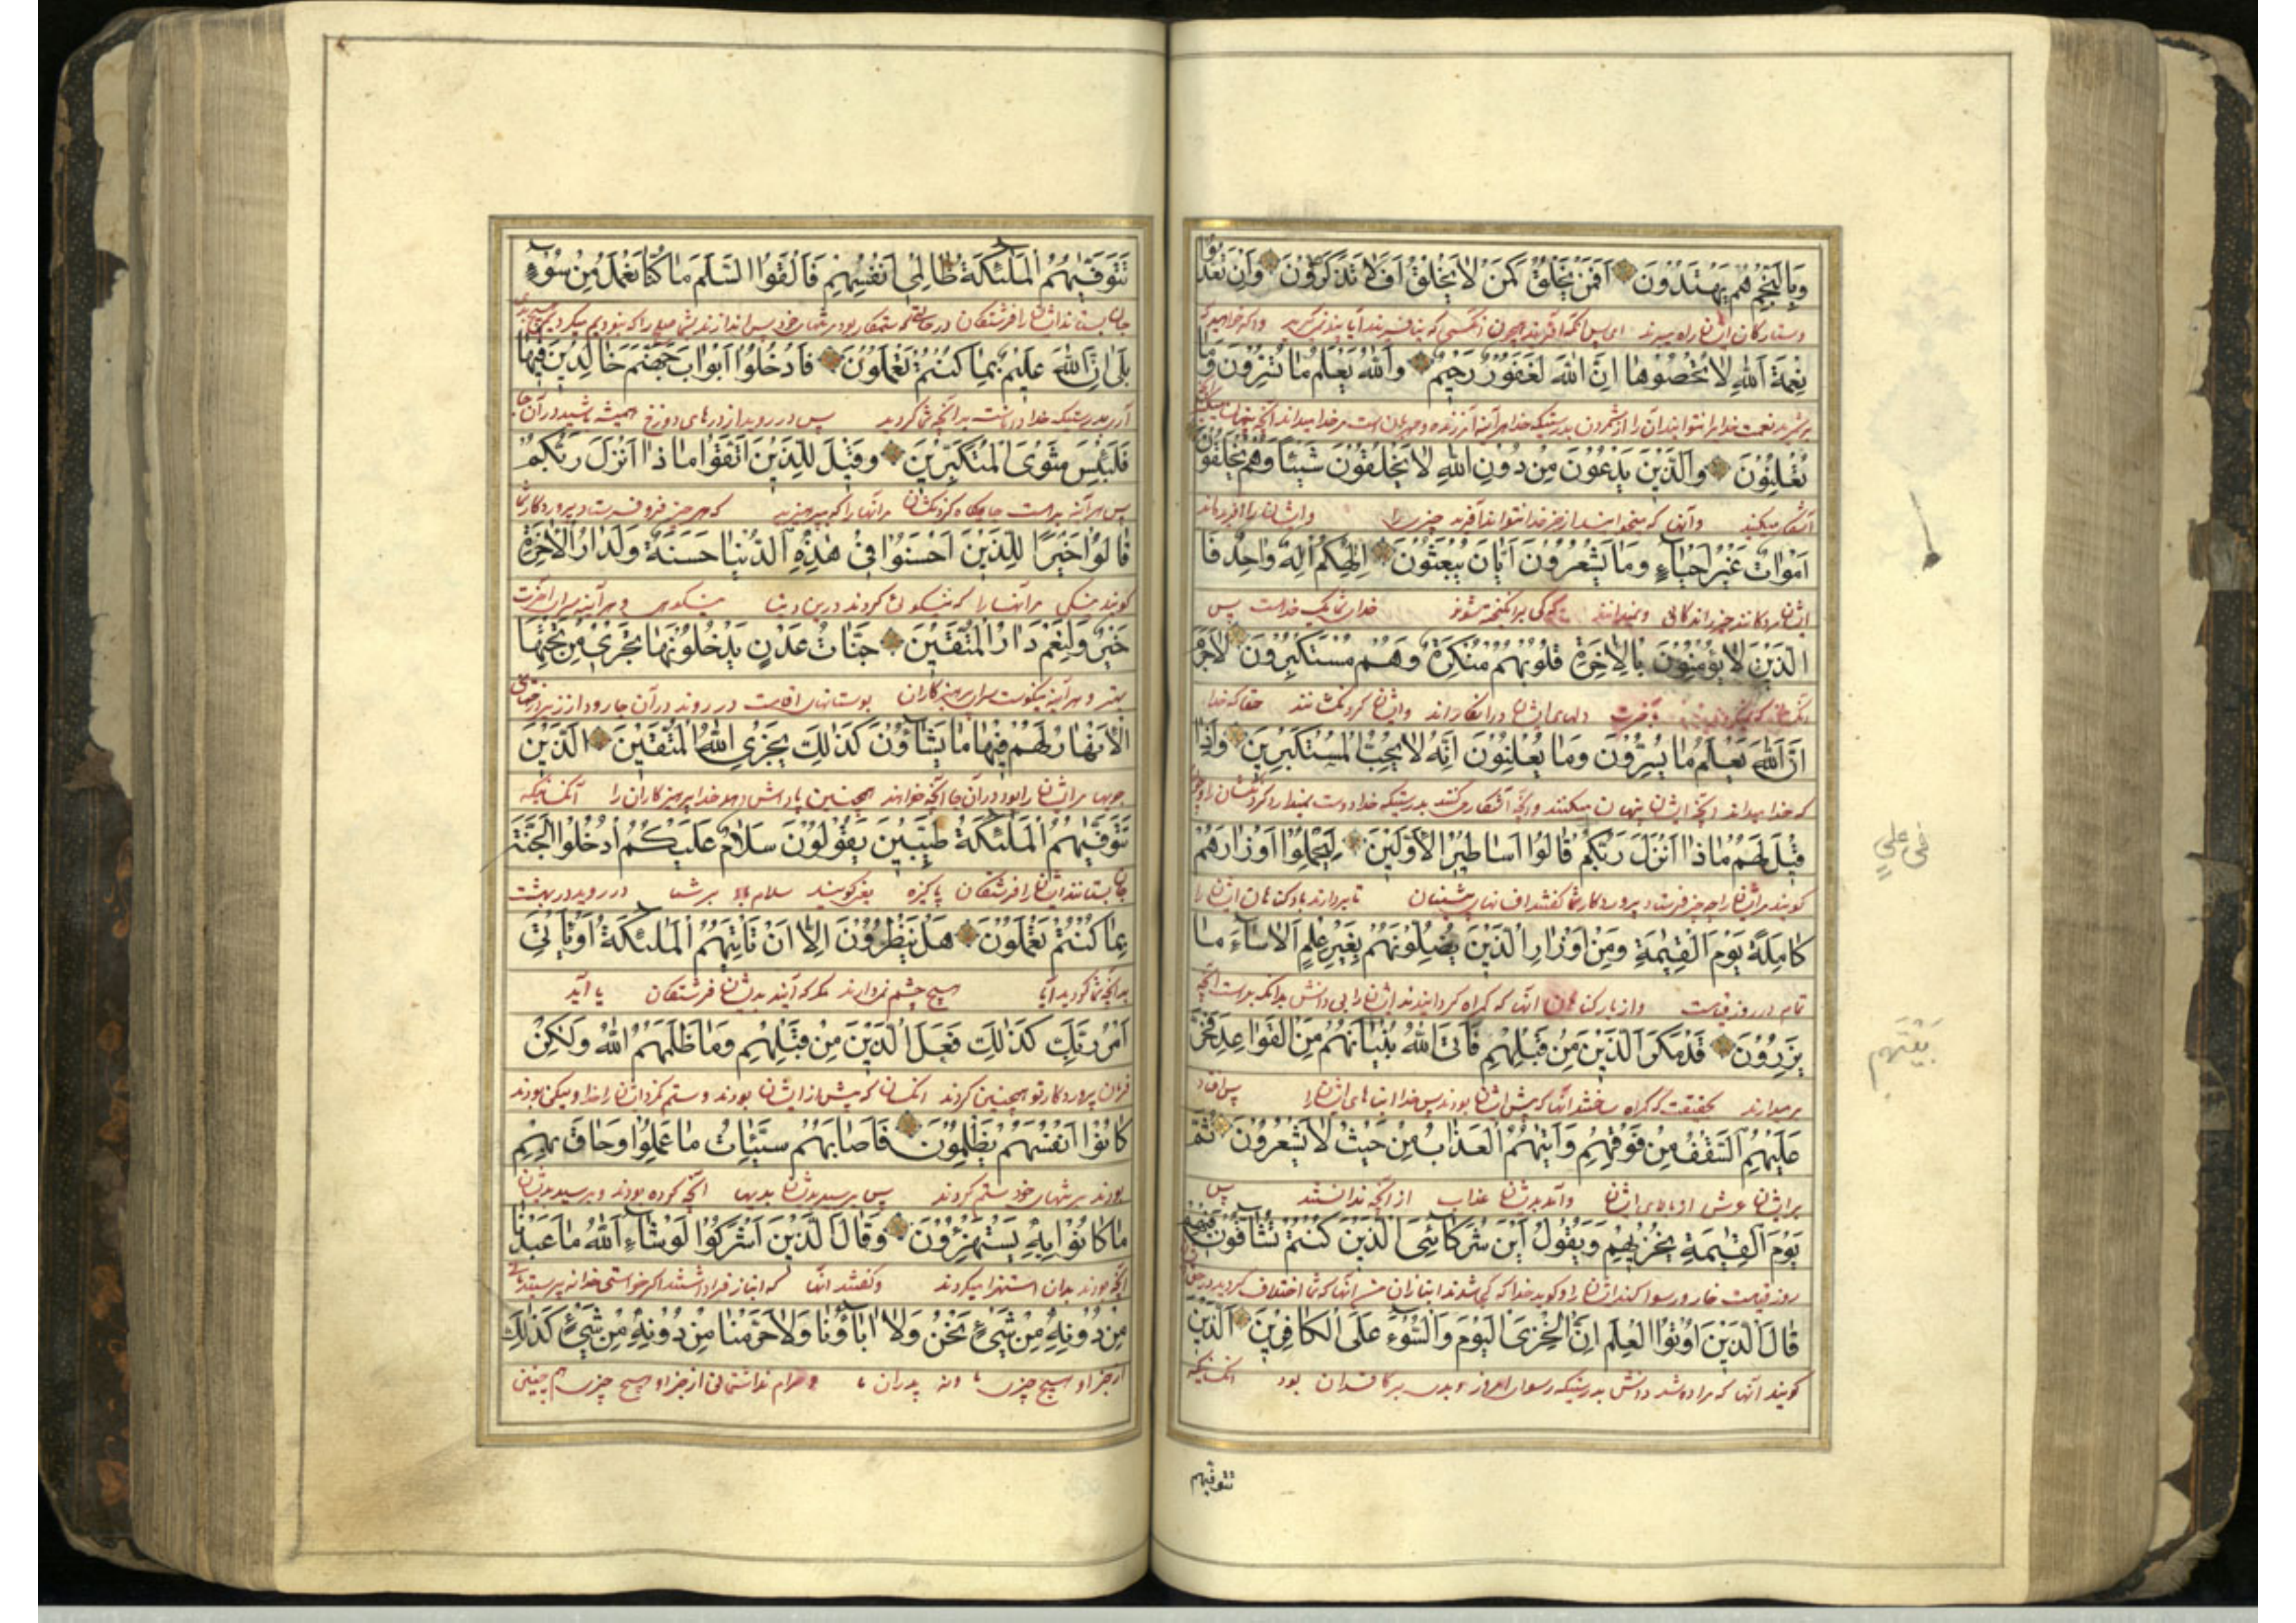 وَبِالنَّجْمِ هُمْ يَهْتَدُونَ اَفَمَنْ يَخْلُقُ كَمَنْ لَا يَخْلُقُ اَفَلَا تَذَكَّرُونَ وَاِنْ تَعُدُّوا
وستارکان ایشان راه میبرند
نِعْمَةَ اللّٰهِ لَا تُحْصُوهَا اِنَّ اللّٰهَ لَغَفُورٌ رَحِيمٌ وَاللّٰهُ يَعْلَمُ مَا تُسِرُّونَ وَمَا
نعمت خدا را نتوانید آن را از شمردن بدرستیکه خدا هر آینه آمرزنده و مهربان است
تُعْلِنُونَ وَالَّذِينَ يَدْعُونَ مِنْ دُونِ اللّٰهِ لَا يَخْلُقُونَ شَيْئًا وَهُمْ يُخْلَقُونَ
آشکار میکنید وآنها که میخوانند از جز خدا نتوانند آفرید چیزی را وایشان را آفریده‌اند
اَمْوَاتٌ غَيْرُ اَحْيَاءٍ وَمَا يَشْعُرُونَ اَيَّانَ يُبْعَثُونَ اِلٰهُكُمْ اِلٰهٌ وَاحِدٌ فَا
خدای شما یک خداست پس
لَّذِينَ لَا يُؤْمِنُونَ بِالْاٰخِرَةِ قُلُوبُهُمْ مُنْكِرَةٌ وَهُمْ مُسْتَكْبِرُونَ لَا جَرَمَ
دلهای ایشان در انکاراند وایشان کردنکشانند حقا که خدا
اَنَّ اللّٰهَ يَعْلَمُ مَا يُسِرُّونَ وَمَا يُعْلِنُونَ اِنَّهُ لَا يُحِبُّ الْمُسْتَكْبِرِينَ وَاِذَا
که خدا میداند آنچه ایشان پنهان میکنند وآنچه آشکار میکنند بدرستیکه خدا دوست نمیدارد کردنکشان را
قِيلَ لَهُمْ مَاذَا اَنْزَلَ رَبُّكُمْ قَالُوا اَسَاطِيرُ الْاَوَّلِينَ لِيَحْمِلُوا اَوْزَارَهُمْ
کویند مر ایشان را چه چیز فرستاد پروردکار شما کفتند افسانهای پیشینیان تا بردارند بار کناهان ایشان را
كَامِلَةً يَوْمَ الْقِيٰمَةِ وَمِنْ اَوْزَارِ الَّذِينَ يُضِلُّونَهُمْ بِغَيْرِ عِلْمٍ اَلَا سَاءَ مَا
تمام در روز قیامت واز بار کناهان آنها که کمراه کردانیدند ایشان را بی دانش بدانکه بدست آنچه
يَزِرُونَ قَدْ مَكَرَ الَّذِينَ مِنْ قَبْلِهِمْ فَاَتَى اللّٰهُ بُنْيَانَهُمْ مِنَ الْقَوَاعِدِ فَخَرَّ
بر میدارند
عَلَيْهِمُ السَّقْفُ مِنْ فَوْقِهِمْ وَاَتٰيهُمُ الْعَذَابُ مِنْ حَيْثُ لَا يَشْعُرُونَ ثُمَّ
بر ایشان عرش از بالای ایشان وآمد بدیشان عذاب از آنچه ندانستند پس
يَوْمَ الْقِيٰمَةِ يُخْزِيهِمْ وَيَقُولُ اَيْنَ شُرَكَائِيَ الَّذِينَ كُنْتُمْ تُشَاقُّونَ فِيهِمْ
روز قیامت خار ورسوا کند ایشان را وکوید خدا
قَالَ الَّذِينَ اُوتُوا الْعِلْمَ اِنَّ الْخِزْيَ الْيَوْمَ وَالسُّوءَ عَلَى الْكَافِرِينَ اَلَّذِينَ
کویند آنها که مر داده شد دانش بدرستیکه رسوای امروز وبدی بر کافران بود آنکسانیکه
تتوفیهم
تَتَوَفّٰيهُمُ الْمَلٰئِكَةُ ظَالِمِي اَنْفُسِهِمْ فَاَلْقَوُا السَّلَمَ مَا كُنَّا نَعْمَلُ مِنْ سُوءٍ
جان بستانند ایشان را فرشتکان
بَلٰى اِنَّ اللّٰهَ عَلِيمٌ بِمَا كُنْتُمْ تَعْمَلُونَ فَادْخُلُوا اَبْوَابَ جَهَنَّمَ خَالِدِينَ فِيهَا
آری بدرستیکه خدا داناست بدآنچه شما کردید پس در روید از درهای دوزخ همیشه باشید در آن جا
فَلَبِئْسَ مَثْوَى الْمُتَكَبِّرِينَ وَقِيلَ لِلَّذِينَ اتَّقَوْا مَاذَا اَنْزَلَ رَبُّكُمْ
پس هر آینه بداست جایکاه کردنکشان مر آنها را که بپرهیزید که چه چیز فرو فرستاد پروردکار شما
قَالُوا خَيْرًا لِلَّذِينَ اَحْسَنُوا فِي هٰذِهِ الدُّنْيَا حَسَنَةٌ وَلَدَارُ الْاٰخِرَةِ
کویند نیکی مر آنها را که نیکوئی کردند درین دنیا نیکوی وهر آینه سرای آخرت
خَيْرٌ وَلَنِعْمَ دَارُ الْمُتَّقِينَ جَنَّاتُ عَدْنٍ يَدْخُلُونَهَا تَجْرِي مِنْ تَحْتِهَا
بهتر وهر آینه نیکوست سرای پرهیزکاران بوستانهای اقامت در روند در آن جا رود از زیر
الْاَنْهَارُ لَهُمْ فِيهَا مَا يَشَاؤُنَ كَذٰلِكَ يَجْزِي اللّٰهُ الْمُتَّقِينَ اَلَّذِينَ
جویها مر ایشان را بود در آن جا آنچه خواهند همچنین پاداش دهد خدا پرهیزکاران را آنکسانیکه
تَتَوَفّٰيهُمُ الْمَلٰئِكَةُ طَيِّبِينَ يَقُولُونَ سَلَامٌ عَلَيْكُمْ اُدْخُلُوا الْجَنَّةَ
جان بستانند ایشان را فرشتکان پاکیزه میکویند سلام باد بر شما در روید در بهشت
بِمَا كُنْتُمْ تَعْمَلُونَ هَلْ يَنْظُرُونَ اِلَّا اَنْ تَأْتِيَهُمُ الْمَلٰئِكَةُ اَوْ يَأْتِيَ
بدآنچه شما کردید آیا هیچ چشم میدارند مکر که آیند بدیشان فرشتکان یا آید
اَمْرُ رَبِّكَ كَذٰلِكَ فَعَلَ الَّذِينَ مِنْ قَبْلِهِمْ وَمَا ظَلَمَهُمُ اللّٰهُ وَلٰكِنْ
فرمان پروردکار تو همچنین کردند آنکسان که پیش از ایشان بودند وستم نکرد ایشان را خدا ولیکن بودند
كَانُوا اَنْفُسَهُمْ يَظْلِمُونَ فَاَصَابَهُمْ سَيِّئَاتُ مَا عَمِلُوا وَحَاقَ بِهِمْ
بودند بر تنهای خود ستم کردند پس برسید بدیشان بدیها آنچه کرده بودند وبرسید بدیشان
مَا كَانُوا بِهِ يَسْتَهْزِؤُنَ وَقَالَ الَّذِينَ اَشْرَكُوا لَوْ شَاءَ اللّٰهُ مَا عَبَدْنَا
آنچه بودند بدان استهزا میکردند وکفتند آنها که انباز فرا داشتند اکر خواستی خدا نه پرستیدیمی
مِنْ دُونِهِ مِنْ شَيْءٍ نَحْنُ وَلَا اٰبَاؤُنَا وَلَا حَرَّمْنَا مِنْ دُونِهِ مِنْ شَيْءٍ كَذٰلِكَ
از جز او هیچ چیزی ما ونه پدران ما وحرام نداشتمانی از جز او هیچ چیزی همچنین